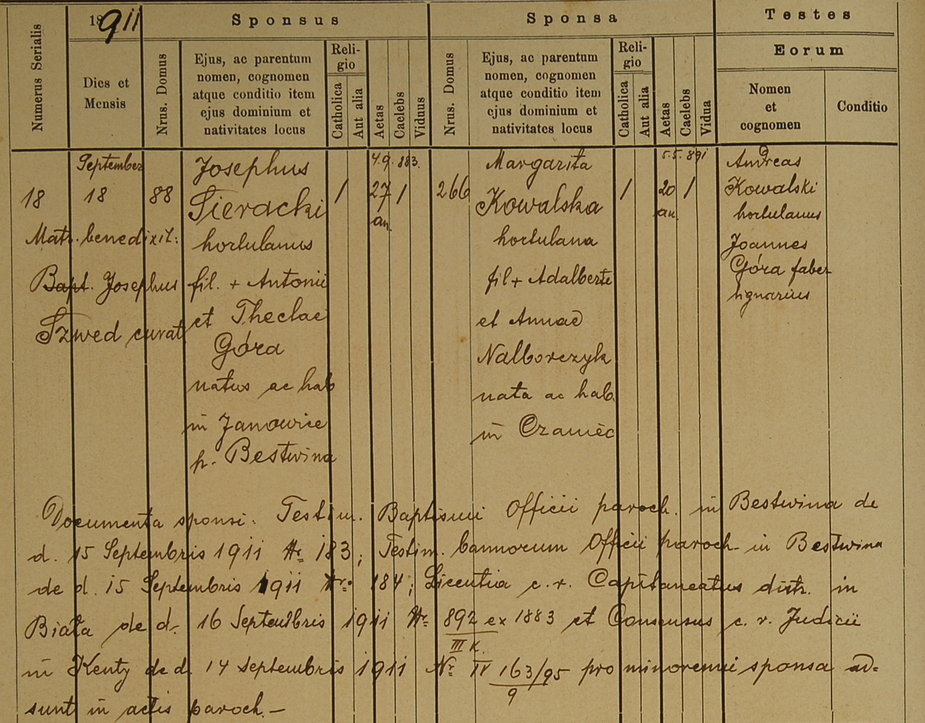 1911
Sponsus
Sponsa
Testes
Eorum
Numerus Serialis
Dies et
Mensis
Nrus. Domus
Ejus, ac parentum
nomen, cognomen
atque conditio item
ejus dominium et
nativitates locus
Reli-
gio
Catholica
Aut alia
Aetas
Caelebs
Viduus
Nrus. Domus
Ejus, ac parentum
nomen, cognomen
atque conditio item
ejus dominium et
nativitates locus
Reli-
gio
Catholica
Aut alia
Aetas
Caelebs
Vidua
Nomen
et
cognomen
Conditio
18
September
18
Matr. benedixit:
Bapt. Josephus
Szwed curat
88
Josephus
Sieracki
hortulanus
fil. + Antonii
et Theclae
Góra
natus ac hab
in Janowice
p. Bestwina
/
4.9. 883.
27
an.
/
266
Margarita
Kowalska
hortulana
fil + Adalberte
et Annae
Nalborczyk
nata ac hab
in Czaniec
/
5.5. 891
20
an.
/
Andreas
Kowalski
hortulanus
Joannes
Góra faber
lignarius
Documenta sponsi: Testim. Baptismi Officii paroch. in Bestwina de
d. 15 Septembris 1911 Nr. 183; Testim. bannorum Officii paroch. in Bestwina
de d. 15 Septembris 1911 Nr. 184; Licentia c. r. Capitaneatus distr. in
Biała de d. 16 Septembris 1911 Nr. 892 ex 1883 et Consensus c. r. Judicii
III K.
in Kenty de d. 14 Septembris 1911 Nr. IV 163/95 pro minorenni sponsa ad-
9
sunt in actis paroch. –